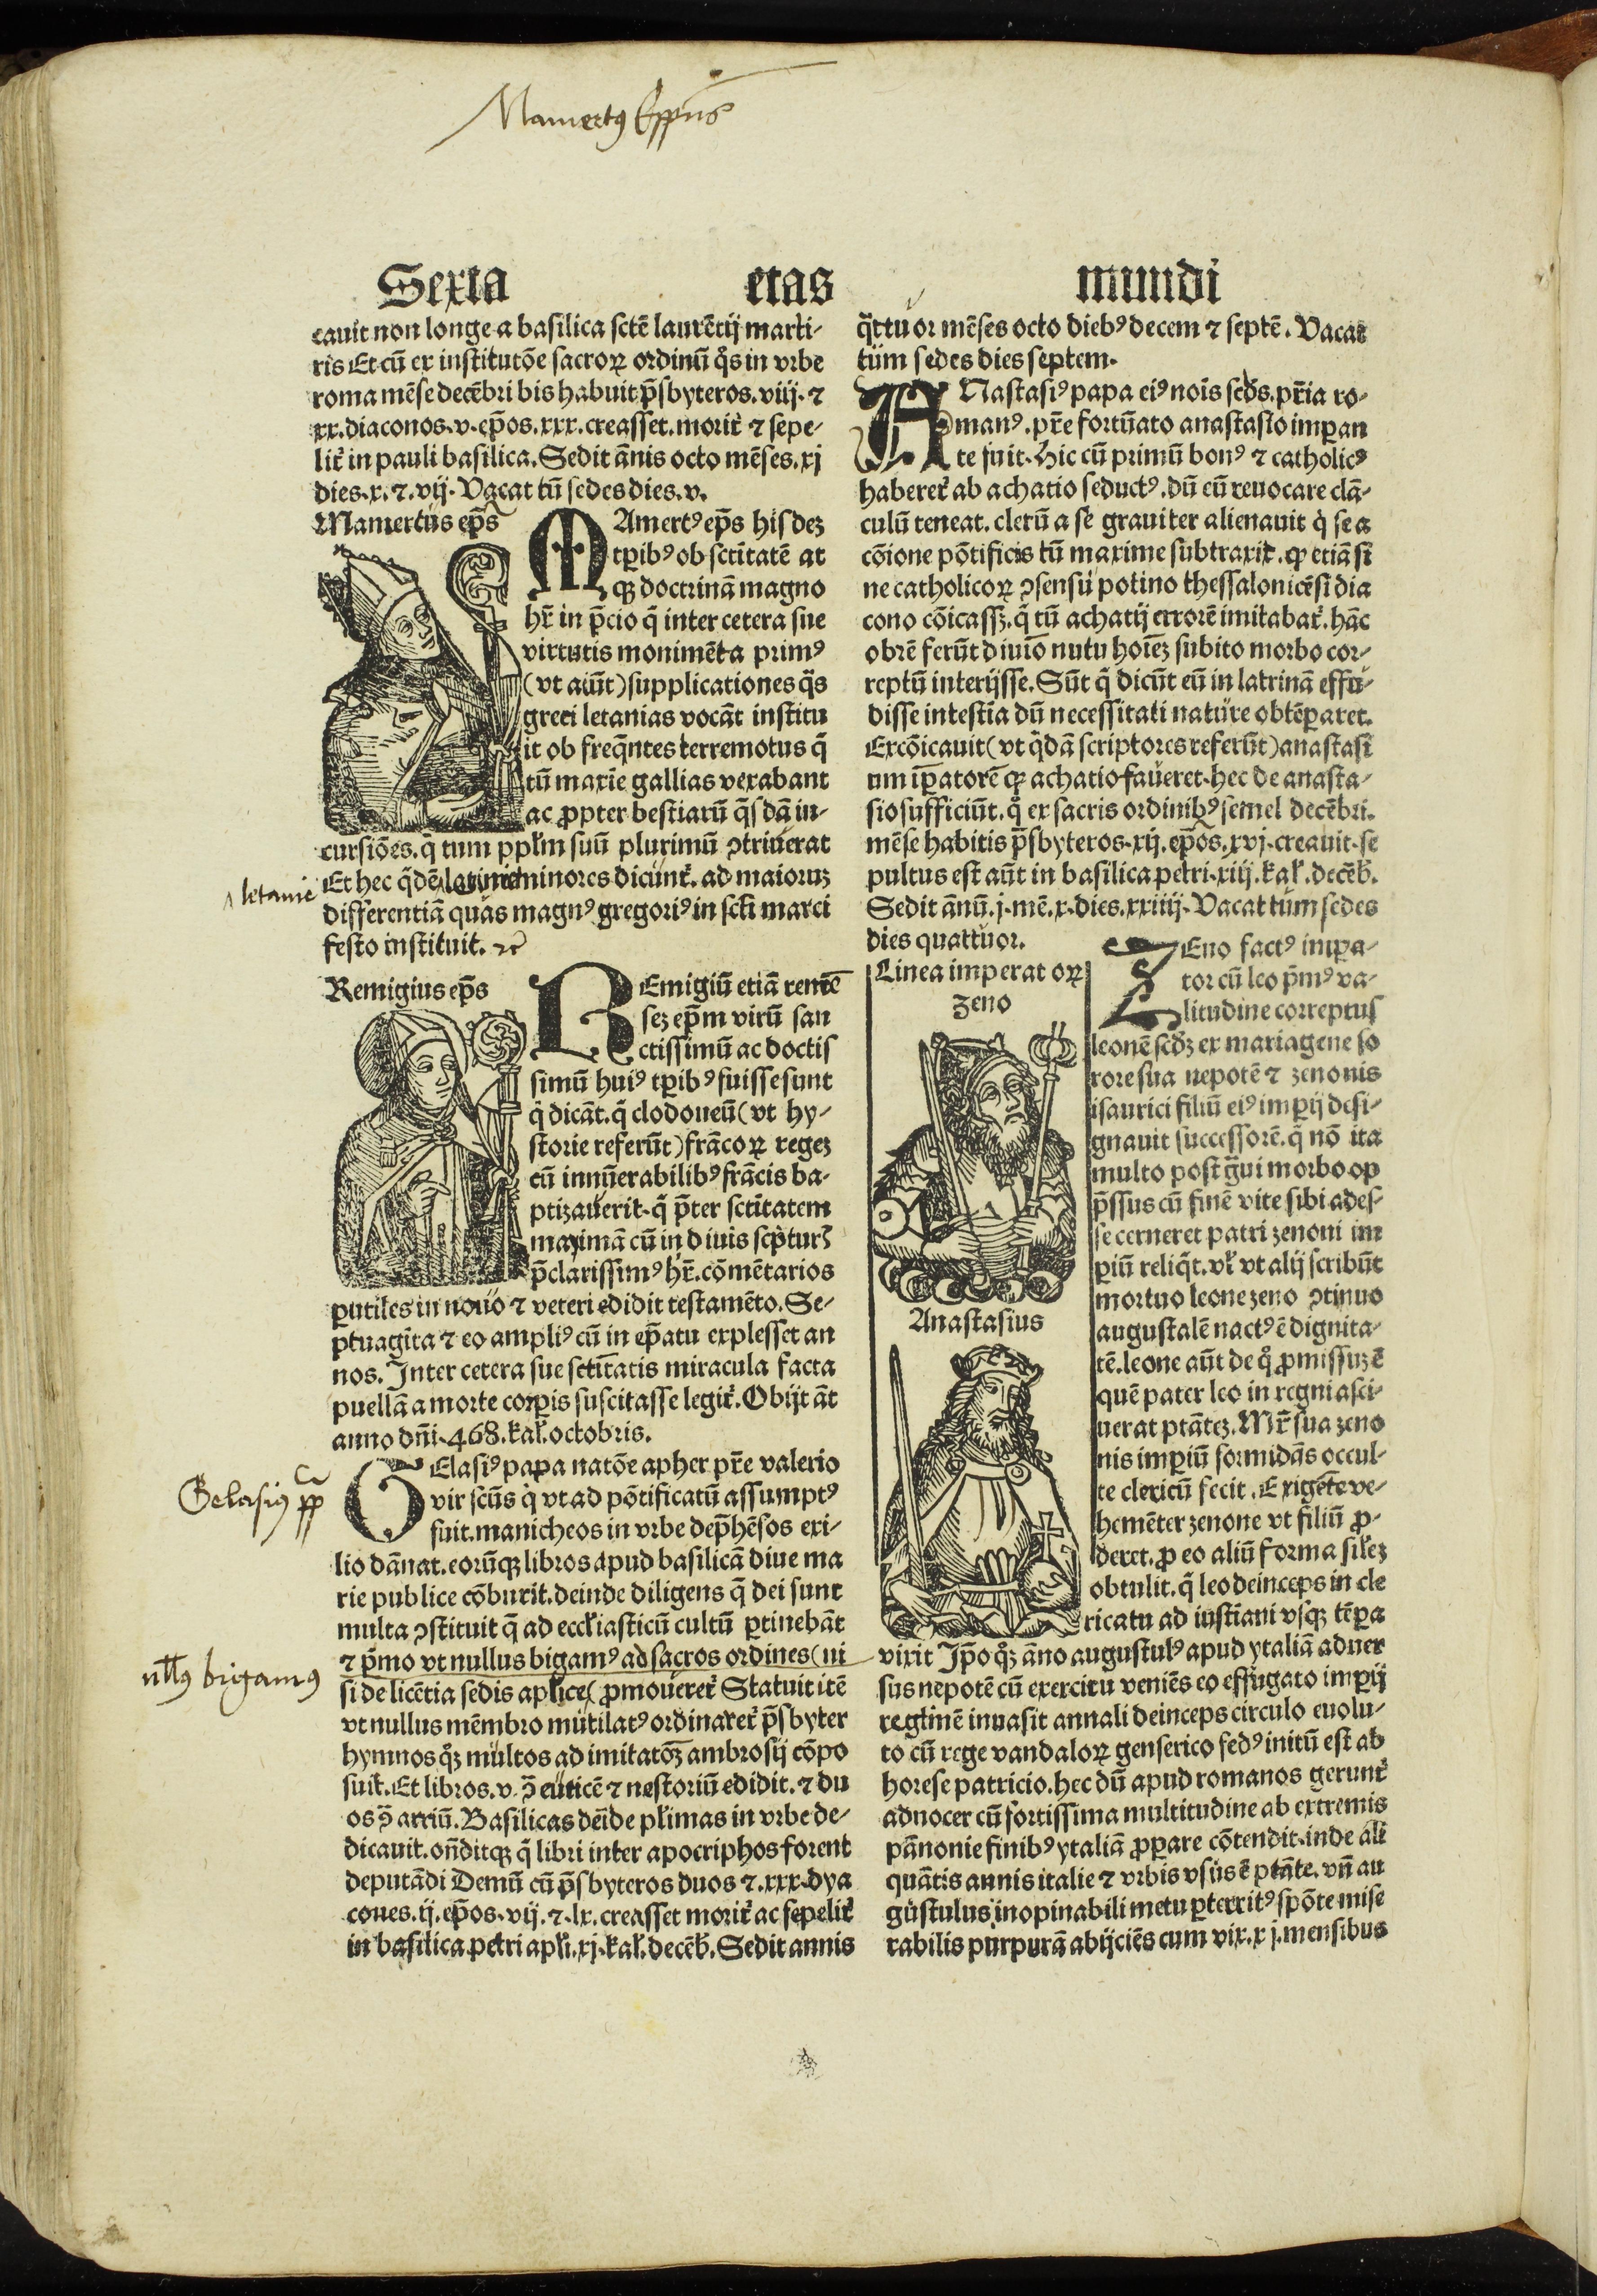 Mamertꝰ Epus
Sexta etas mundi
cauit non longe a basilica sctē laurētij marti-
ris Et cū ex institutōe sacroꝝ ordinū q̊s in vrbe
roma mēse decēbri bis habuit p̄sbyteros. viij. ⁊
xx. diaconos. v. ep̄os. xxx. creasset. morit᷑ ⁊ sepe-
lit᷑ in pauli basilica. Sedit ānis octo mēses. xj
dies. x. ⁊. vij. Vacat tū sedes dies. v.
Mamertus ep̄s
MAmertꝰ ep̄s his dez
tꝑibꝰ ob sctītatē at
qꝫ doctrinā magno
hr̄ in p̄cio q̄ inter cetera sue
virtutis monimēta primꝰ
(vt aiūt) supplicationes q̄s
greci letanias vocāt institu
it ob freq̄ntes terremotus q̄
tū maxīe gallias vexabant
ac ꝓpter bestiarū q̄sdā in-
cursiōes. q̄ tum ppl̄m suū plurimū ↄtriuerat
letanie
Et hec q̄dē minores dicunt᷑. ad maioruz
differentiā quas magnꝰ gregoriꝰ in scti marci
festo instituit. ⁊c̄
Remigius ep̄s
REmigiū etiā remē
sez ep̄m virū san
ctissimū ac doctis
simū huiꝰ tꝑibꝰ fuisse sunt
q̇ dicāt. q̄ clodoueū (vt hy-
storie referūt) frācoꝝ regez
cū innūerabilibꝰ frācis ba-
ptizauerit. q̄ p̄ter sctītatem
maximā cū in diuis sc̄ptur᷑
p̄clarissimꝰ hr̄. cōmētarios
ꝑutiles in nouo ⁊ veteri edidit testamēto. Se-
ptuagīta ⁊ eo ampliꝰ cū in ep̄atu explesset an
nos. Inter cetera sue sctītatis miracula facta
puellā a morte corꝑis suscitasse legit᷑. Obijt āt
anno dn̄i. 468. kal̄. octobris.
Gelasiꝰ pp
GElasiꝰ papa natōe apher pr̄e valerio
vir scūs q̇ vt ad pōtificatū assumptꝰ
fuit. manicheos in vrbe dep̄hēsos exi-
lio dānat. eorūqꝫ libros apud basilicā diue ma
rie publice cōburit. deinde diligens q̄ dei sunt
multa ↄstituit q̄ ad eccl̄iasticū cultū ꝑtinebāt
nllꝰ bigamꝰ
⁊ p̄mo vt nullus bigamꝰ ad sacros ordines (ni
si de licētia sedis aplice( ꝓmoueret᷑ Statuit itē
vt nullus mēmbro mutilatꝰ ordinaret᷑ p̄sbyter
hymnos qꝫ multos ad imitatōꝫ ambrosij cōpo
suit. Et libros. v. ↄ̄ euticē ⁊ nestoriū edidit. ⁊ du
os ↄ̄ arriū. Basilicas deīde pl̄imas in vrbe de-
dicauit. on̄ditqꝫ q̄ libri inter apocriphos forent
deputādi Demū cū p̄sbyteros duos ⁊. xxx. dya
cones. ij. ep̄os. vij. ⁊. lx. creasset morit᷑ ac sepelit᷑
in basilica petri apl̄i. xj. kal̄. decēb̄. Sedit annis
q̄ttuor mēses octo diebꝰ decem ⁊ septē. Vacat
tum sedes dies septem.
ANastasiꝰ papa eiꝰ nois̄ scd̄s. pr̄ia ro-
manꝰ. pr̄e fortūato anastasio imꝑan
te fuit. Hic cū primū bonꝰ ⁊ catholicꝰ
haberet᷑ ab achatio seductꝰ. dū eū reuocare clā-
culū teneat. clerū a se grauiter alienauit q̇ se a
cōione pōtificis tū maxime subtraxit. ꝙ etiā si
ne catholicoꝝ ↄsensu potino thessalonicēsi dia
cono cōicassꝫ. q̄ tū achatij errorē imitabat᷑. hāc
obrē ferūt diuīo nutu hoīez subito morbo cor-
reptū interijsse. Sūt q̄ dicūt eū in latrinā effu-
disse intestīa dū necessitati nature obtēꝑaret.
Excōicauit (vt q̄dā scriptores referūt) anastasi
um iꝑatorē ꝙ achatio faueret. hec de anasta-
sio sufficiūt. q̄ ex sacris ordinibꝰ semel decēbri.
mēse habitis p̄sbyteros. xij. ep̄os. xvj. creauit. se
pultus est aūt in basilica petri. xiij. kal̄. decēb̄.
Sedit ānū. j. mē. x. dies. xxiiij. Vacat tum sedes
dies quattuor.
Linea imperatoꝝ
zeno
Anastasius
ZEno factꝰ imꝑa-
tor cū leo p̄mꝰ va-
litudine correptus
leonē scd̄ꝫ ex mariagene so
rore sua nepotē ⁊ zenonis
isaurici filiū eiꝰ imꝑij desi-
gnauit successorē. q̄ nō ita
multo post g̃ui morbo op
p̄ssus cū finē vite sibi ades-
se cerneret patri zenoni im
ꝑiū reliq̄t. vl̄ vt alij scribūt
mortuo leone zeno ↄtinuo
augustalē nactꝰ ē dignita-
tē. leone aūt de q̊ ꝓmissuz ē
quē pater leo in regni asci-
uerat ptātez. Mr̄ sua zeno
nis imꝑiū formidās occul-
te clericū fecit. Exigēte ve-
hemēter zenone vt filiū ꝓ-
deret. ꝓ eo aliū forma sil̄ez
obtulit. q̄ leo deinceps in cle
ricatu ad iustīani vsqꝫ tēꝑa
vixit Ip̄o qꝫ āno augustulꝰ apud ytaliā aduer
sus nepotē cū exercitu veniēs eo effugato imꝑij
regimē inuasit annali deinceps circulo euolu-
to cū rege vandaloꝝ genserico fedꝰ initū est ab
horese patricio. hec dū apud romanos gerunt᷑
adnocer cū fortissima multitudine ab extremis
pānonie finibꝰ ytaliā ꝓꝑare cōtendit. inde ali
quātis annis italie ⁊ vrbis vsus ē ptāte. vn̄ au
gustulus inopinabili metu ꝑterritꝰ spōte mise
rabilis purpurā abijciēs cum vix. xj. mensibus